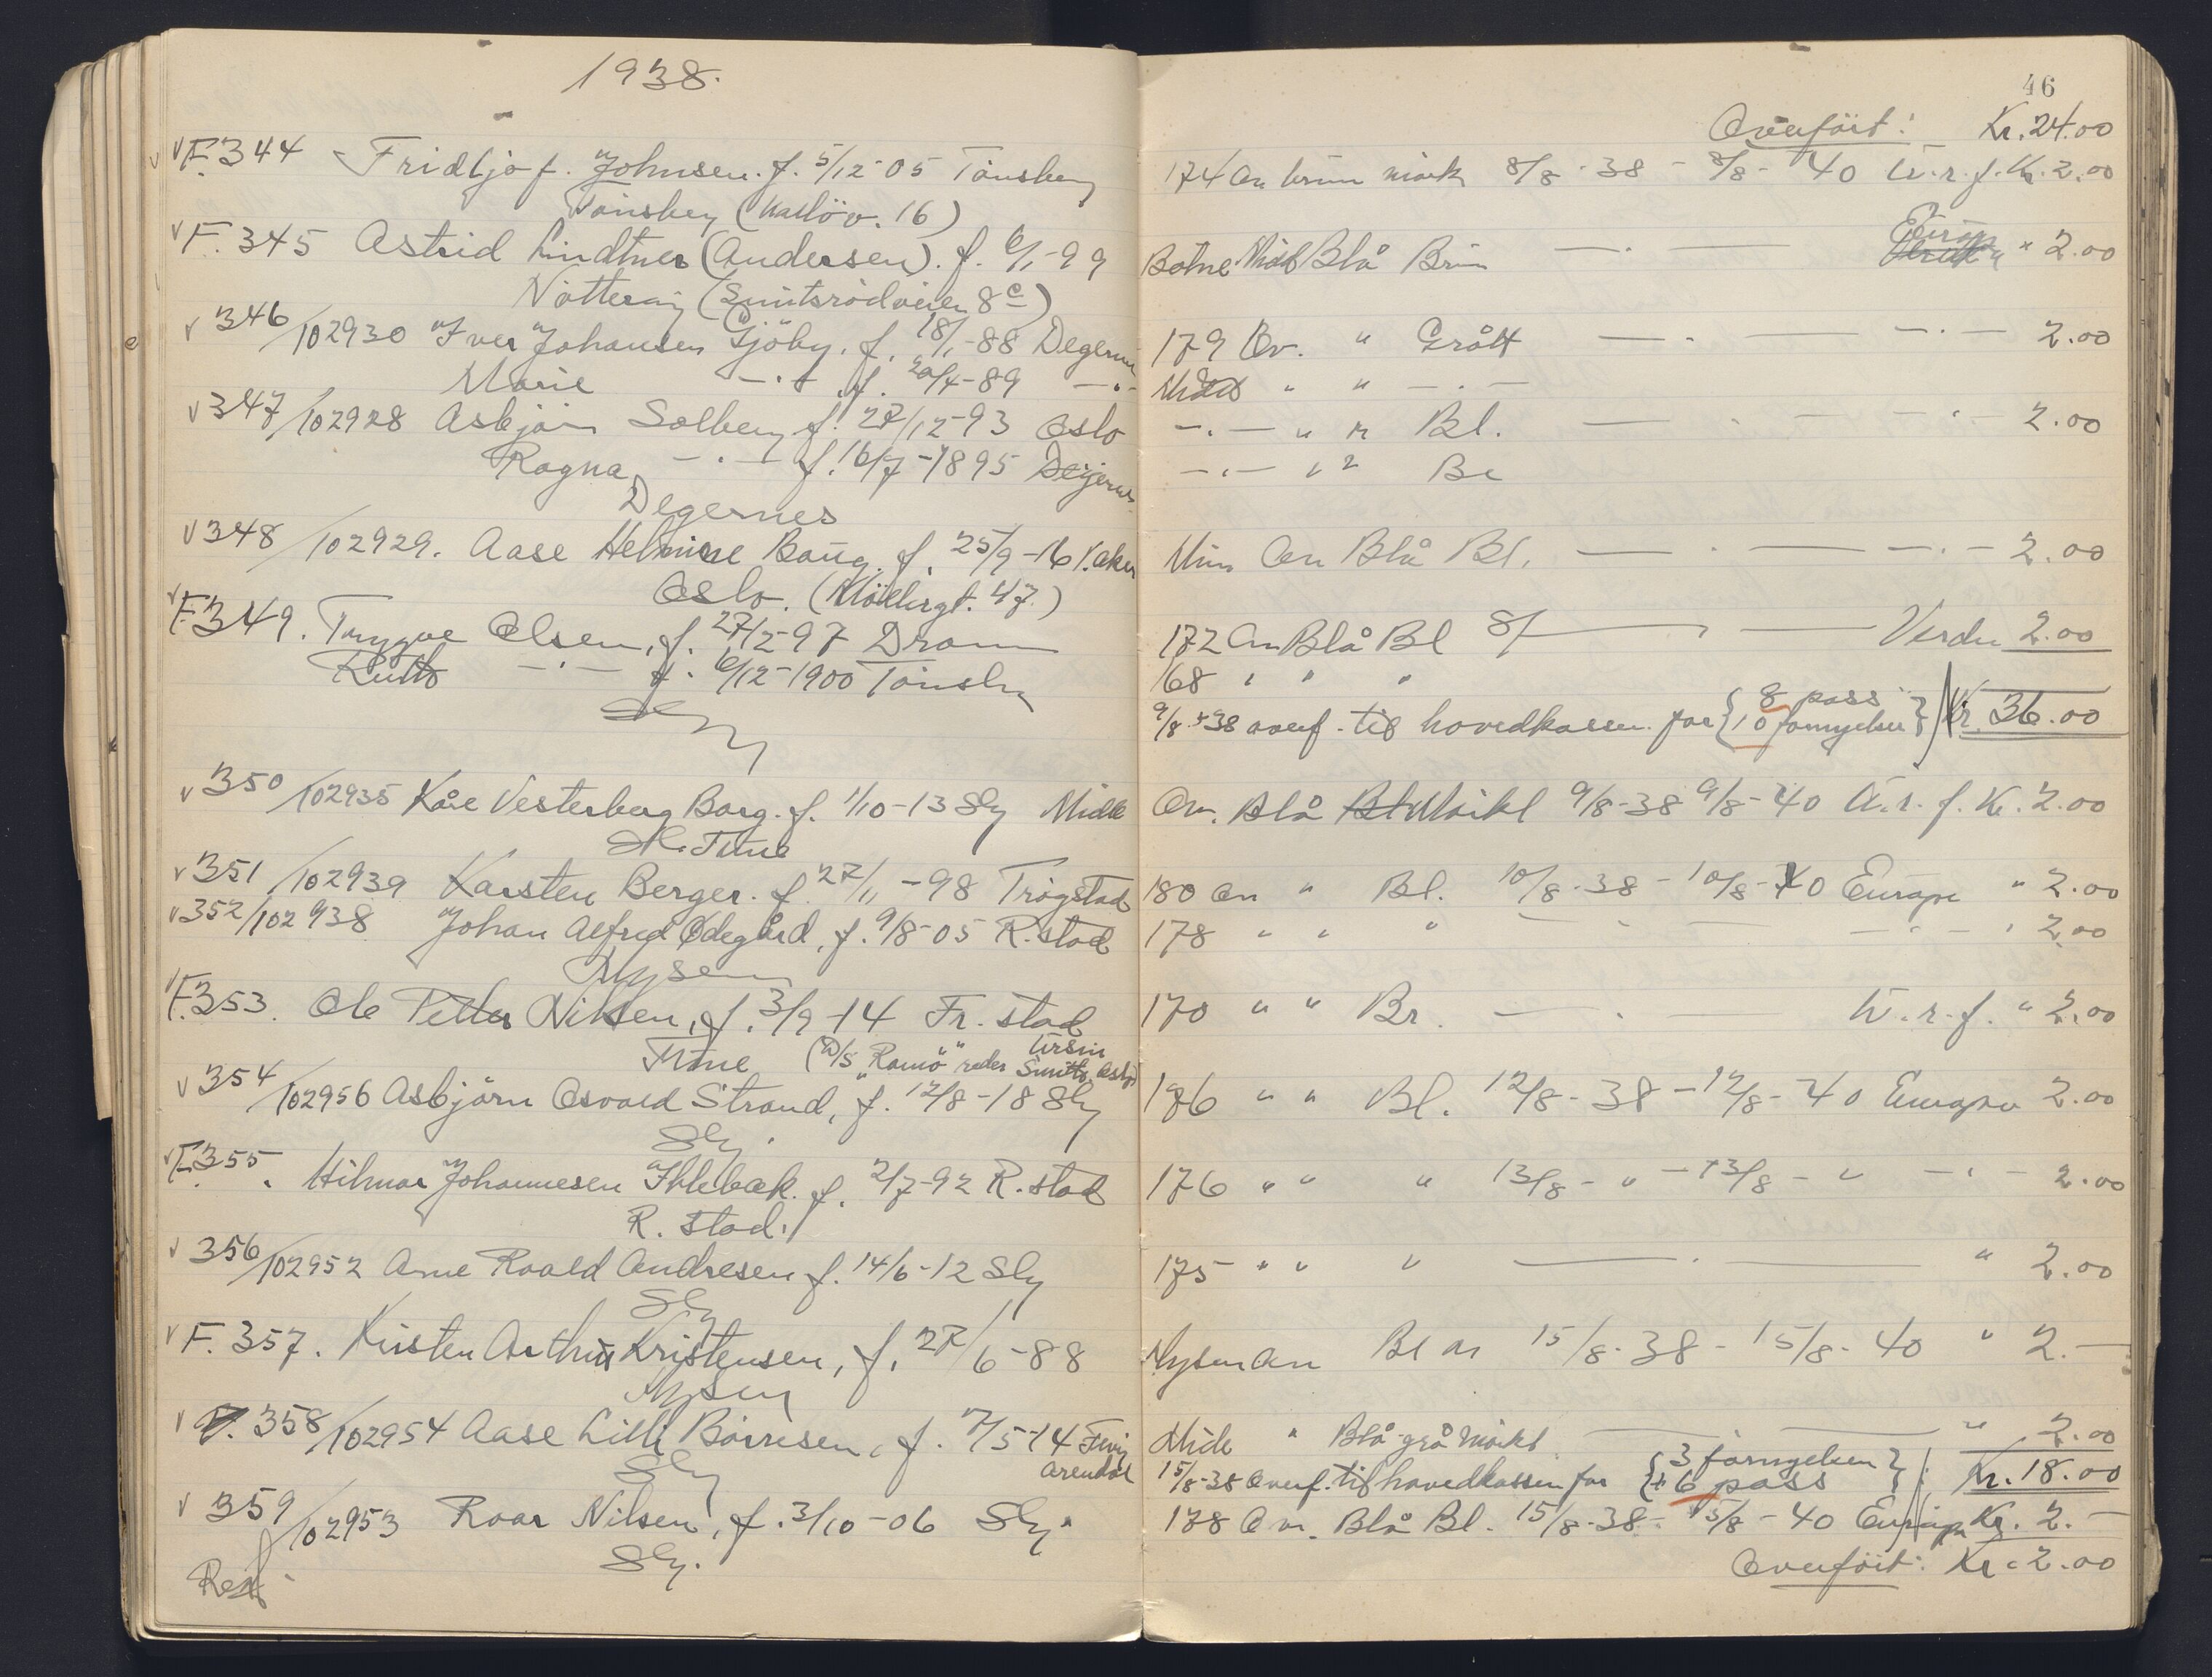 1938.
F.344 Fridtjof Johnsen. f. 5/12-05 Tönsberg
Tönsberg (Kaslöv. 16)
F.345 Astrid Lindtner (Andersen). f. 6/1-99
Nötteröy (Smitsrödveien 8c)
346/102930 Iver Johansen Gjöby, f. 18/1-88 Degernes
Marie —·— f. 20/4-89 —·—
347/102928 Asbjörn Solberg f. 27/12-93 Oslo
Ragna —·— f. 16/7-1895 Degernes
Degernes
348/102929. Aase Helmine Baug. f. 25/9-16 V. aker
Oslo. (Möllergt. 47.)
F.349. Trygve Olsen, f. 27/2-97 Dramm
Ruth —·— f. 6/12-1900 Tönsberg
Sbg
350/102935 Kåre Vesterberg Borg. f. 1/10-13 Sbg Midle
H. Tune
351/102939 Karsten Berger. f. 27/11-98 Trögstad
352/102938 Johan Alfred Ödegård, f. 9/8-05 R.stad
Mysen
F.353. Ole Petter Nilsen, f. 3/9-14 Fr.stad
Tune (D/S "Ramö" reder Ursin Smith, Oslo)
354/102956 Asbjörn Osvald Strand, f. 12/8-18 Sbg
Sbg.
F.355. Hilmar Johannesen Ihlebæk. f. 2/7-92 R.stad
R.stad.
356/102952 Arne Roald Andresen f. 14/6-12 Sbg
Sbg
F. 357. Kirsten Arthur Kristensen, f. 27/6-88
Mysen
358/102954 Aase Lilli Börresen, f. 7/5-14 Arendal
Sbg
359/102953 Roar Nilsen, f. 3/10-06 Sbg.
Sbg.
46
Overfört: Kr. 24.00
174 Ov brun mörk 8/8-38 - 8/8-40 U.r.f. Kr. 2.00
Botne Midl Blå Brun —·— Europa " 2.00
179 Ov. " Grått —·— —·— 2.00
Midd " " —·—
—·— " " Bl. — · — —·— 2.00
—·— " " Bl
Min Ov Blå Bl. —·— —·— 2.00
172 Ov Blå Bl 8/ —·— Verden 2.00
168 " " "
9/8-38 overf. til hovedkassen for {8 pass 10 fornyelser} Kr. 36.00
Ov. Blå Mörkt 9/8-38 9/8-40 U.r.f. Kr. 2.00
180 Ov " Bl. 10/8-38 - 10/8-40 Europa " 2.00
178 " " " — · — —·— " 2.00
170 " " Br. — · — U.r.f. " 2.00
186 " " Bl. 12/8-38 - 12/8-40 Europa 2.00
176 " " " 13/8- " - 13/8- " —·— 2.00
175 " " " —·— " 2.00
Mysen Ov Bl 15/8-38 - 15/8-40 " 2.—
Midl " Blå-grå Mörkt — — " 2.00
15/8-38 Overf. til hovedkassen for {3 fornyelser + 6 pass} Kr. 18.00
178 Ov. Blå Bl. 15/8-38 - 15/8-40 Europa Kr. 2.—
Overfört: Kr. 2.00